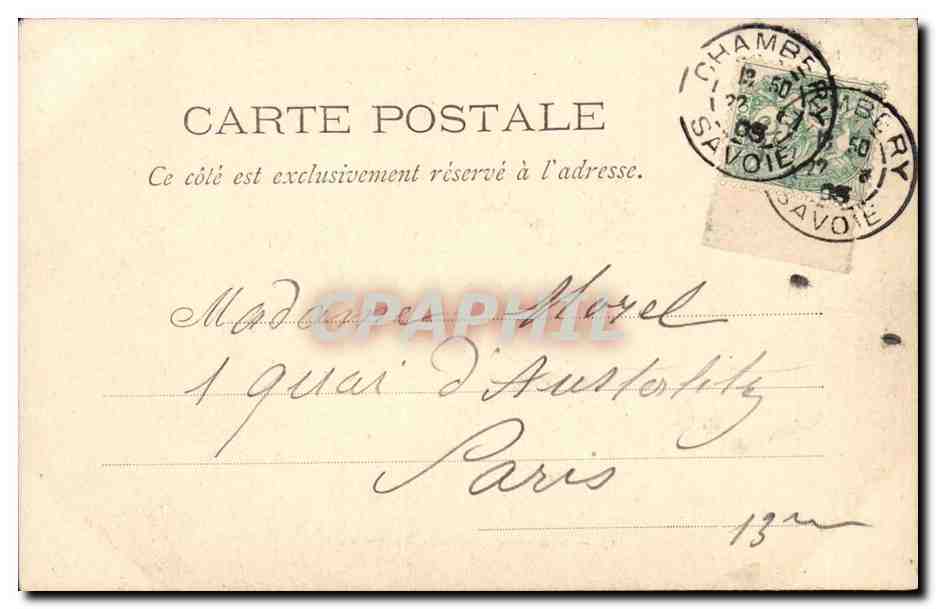 CARTE POSTALE
Ce côté est exclusivement réservé à l'adresse.
CHAMBERY
12 50
22
05
SAVOIE
MBERY
12 50
22
05
SAVOIE
CPAPHIL
Madame Morel
1 quai d'Austerlitz
Paris
13me